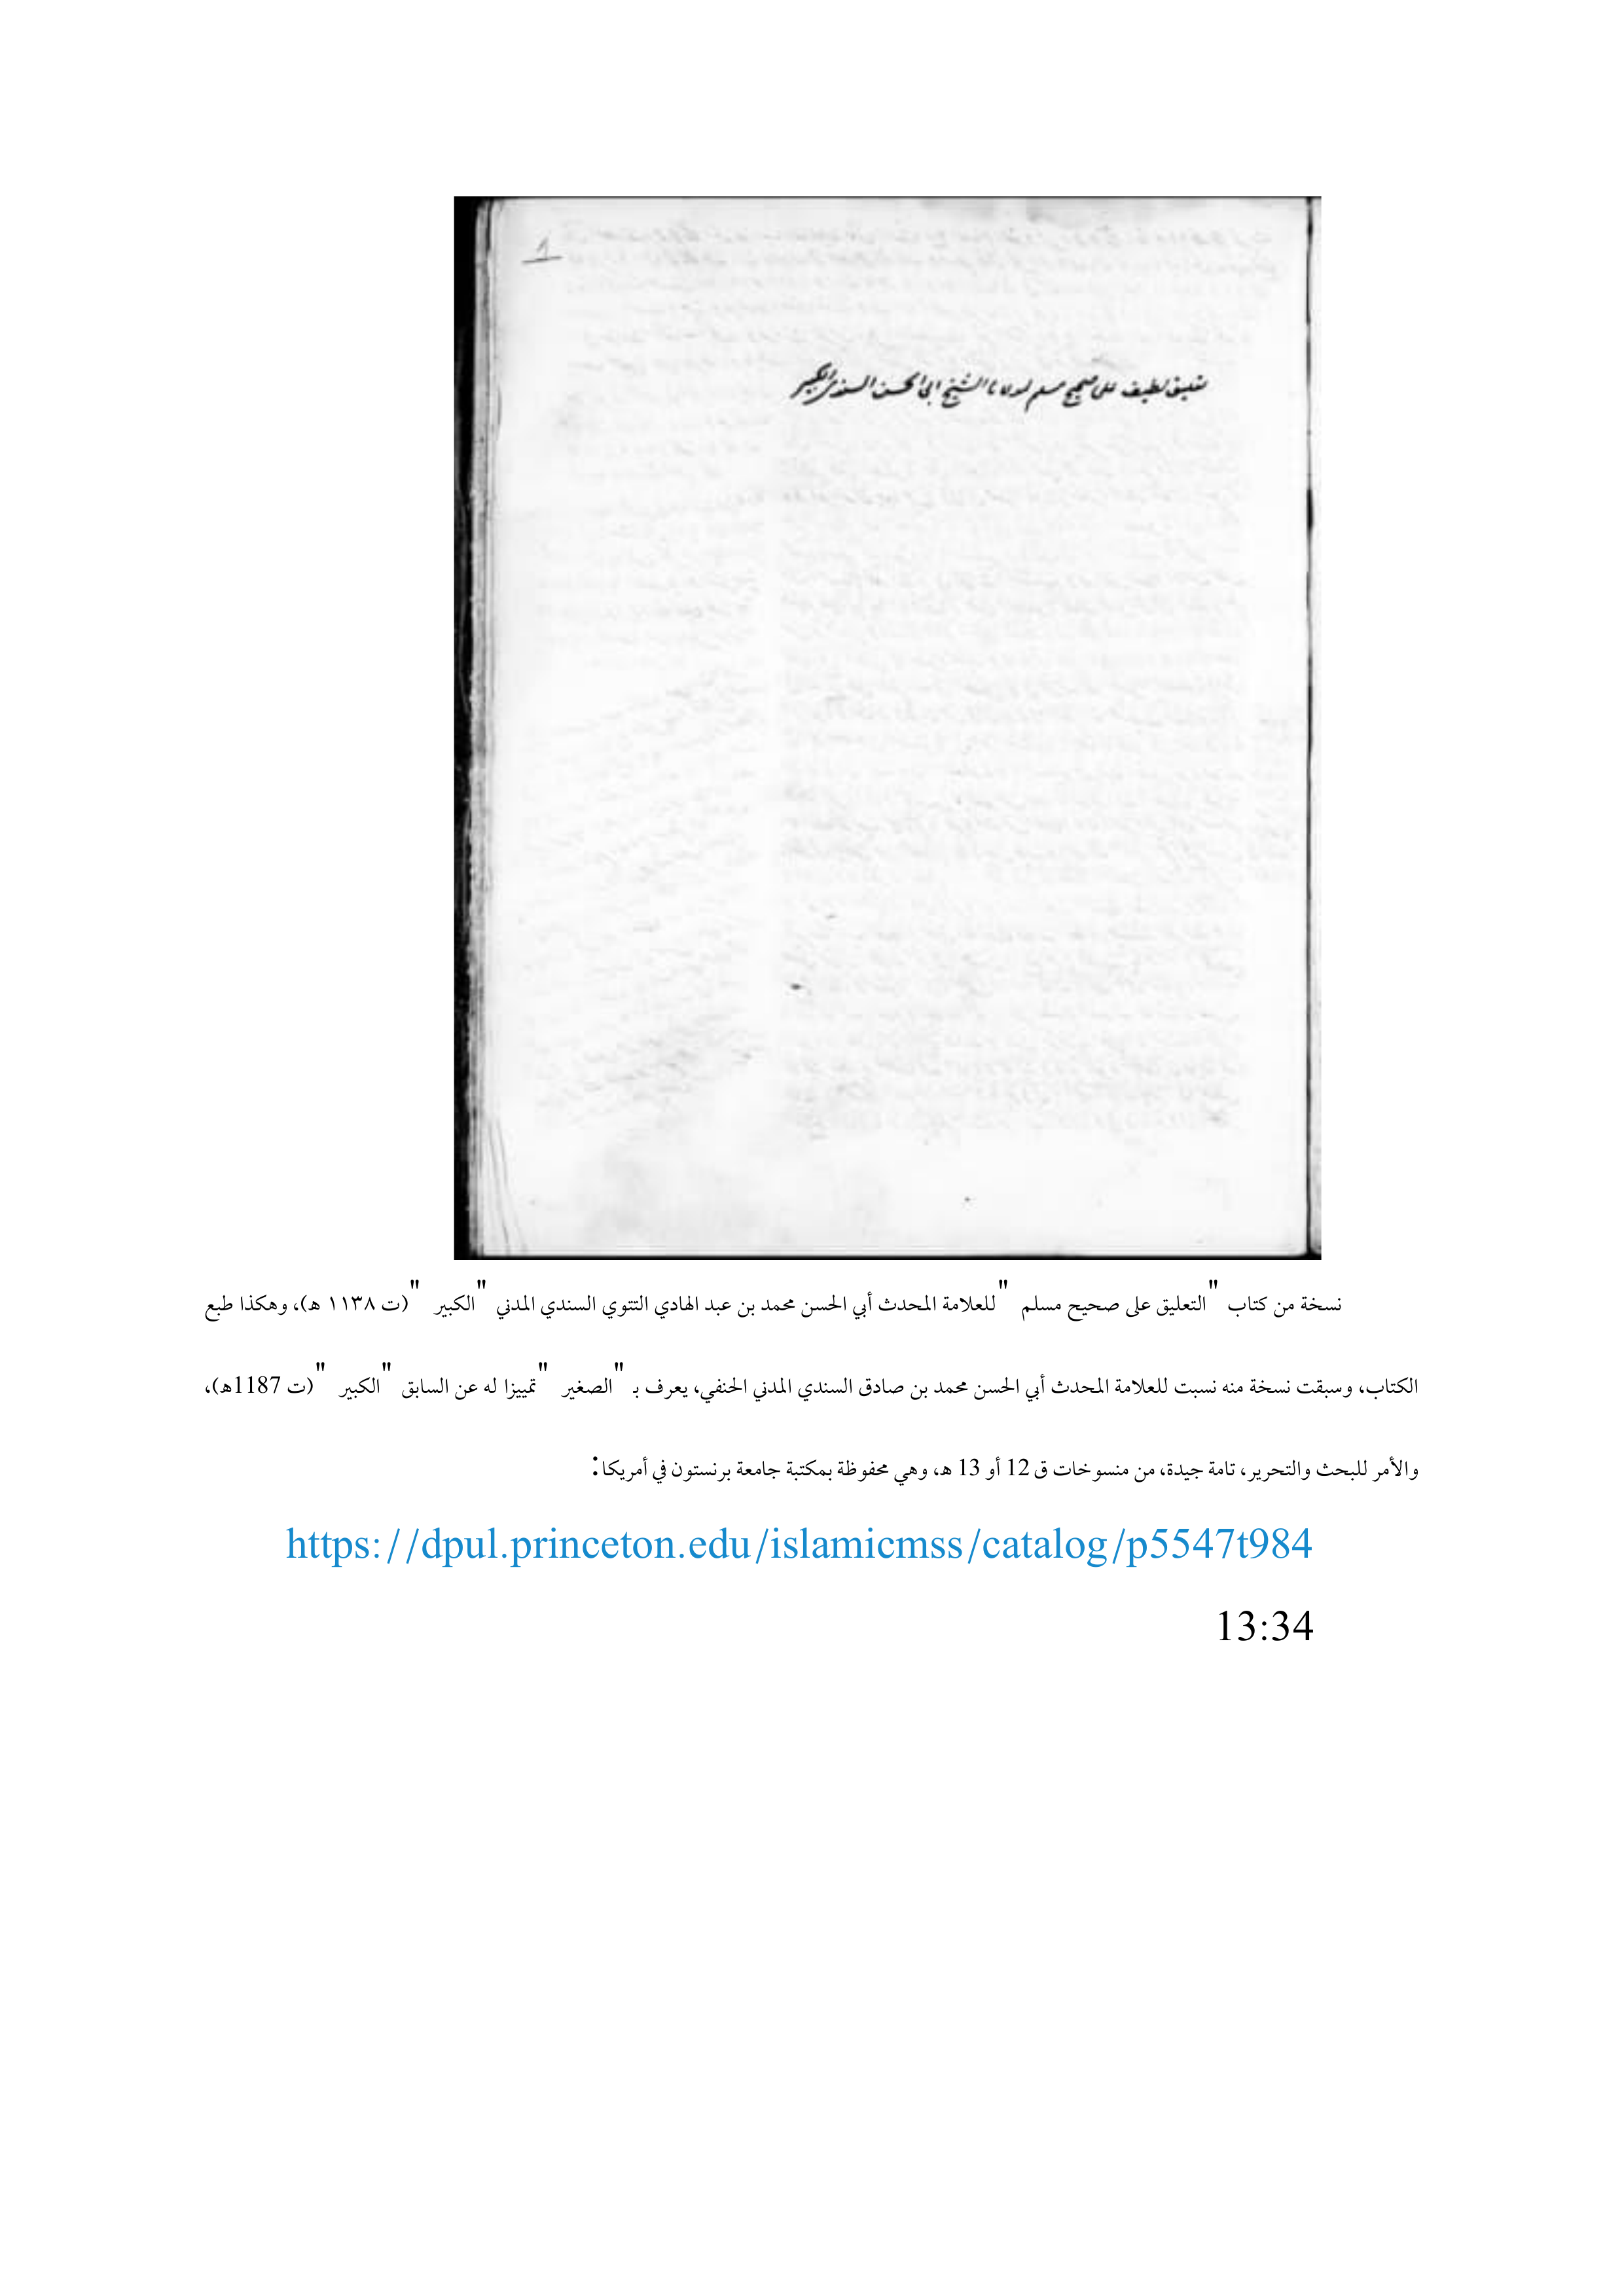 1
تعليق لطيف على صحيح مسلم لمولانا الشيخ ابي الحسن السندي الكبير
نسخة من كتاب "التعليق على صحيح مسلم" للعلامة المحدث أبي الحسن محمد بن عبد الهادي التتوي السندي المدني "الكبير" (ت ١١٣٨ هـ)، وهكذا طبع
الكتاب، وسبقت نسخة منه نسبت للعلامة المحدث أبي الحسن محمد بن صادق السندي المدني الحنفي، يعرف بـ "الصغير" تمييزا له عن السابق "الكبير" (ت 1187هـ)،
والأمر للبحث والتحرير، تامة جيدة، من منسوخات ق 12 أو 13 هـ، وهي محفوظة بمكتبة جامعة برنستون في أمريكا:
https://dpul.princeton.edu/islamicmss/catalog/p5547t984
13:34